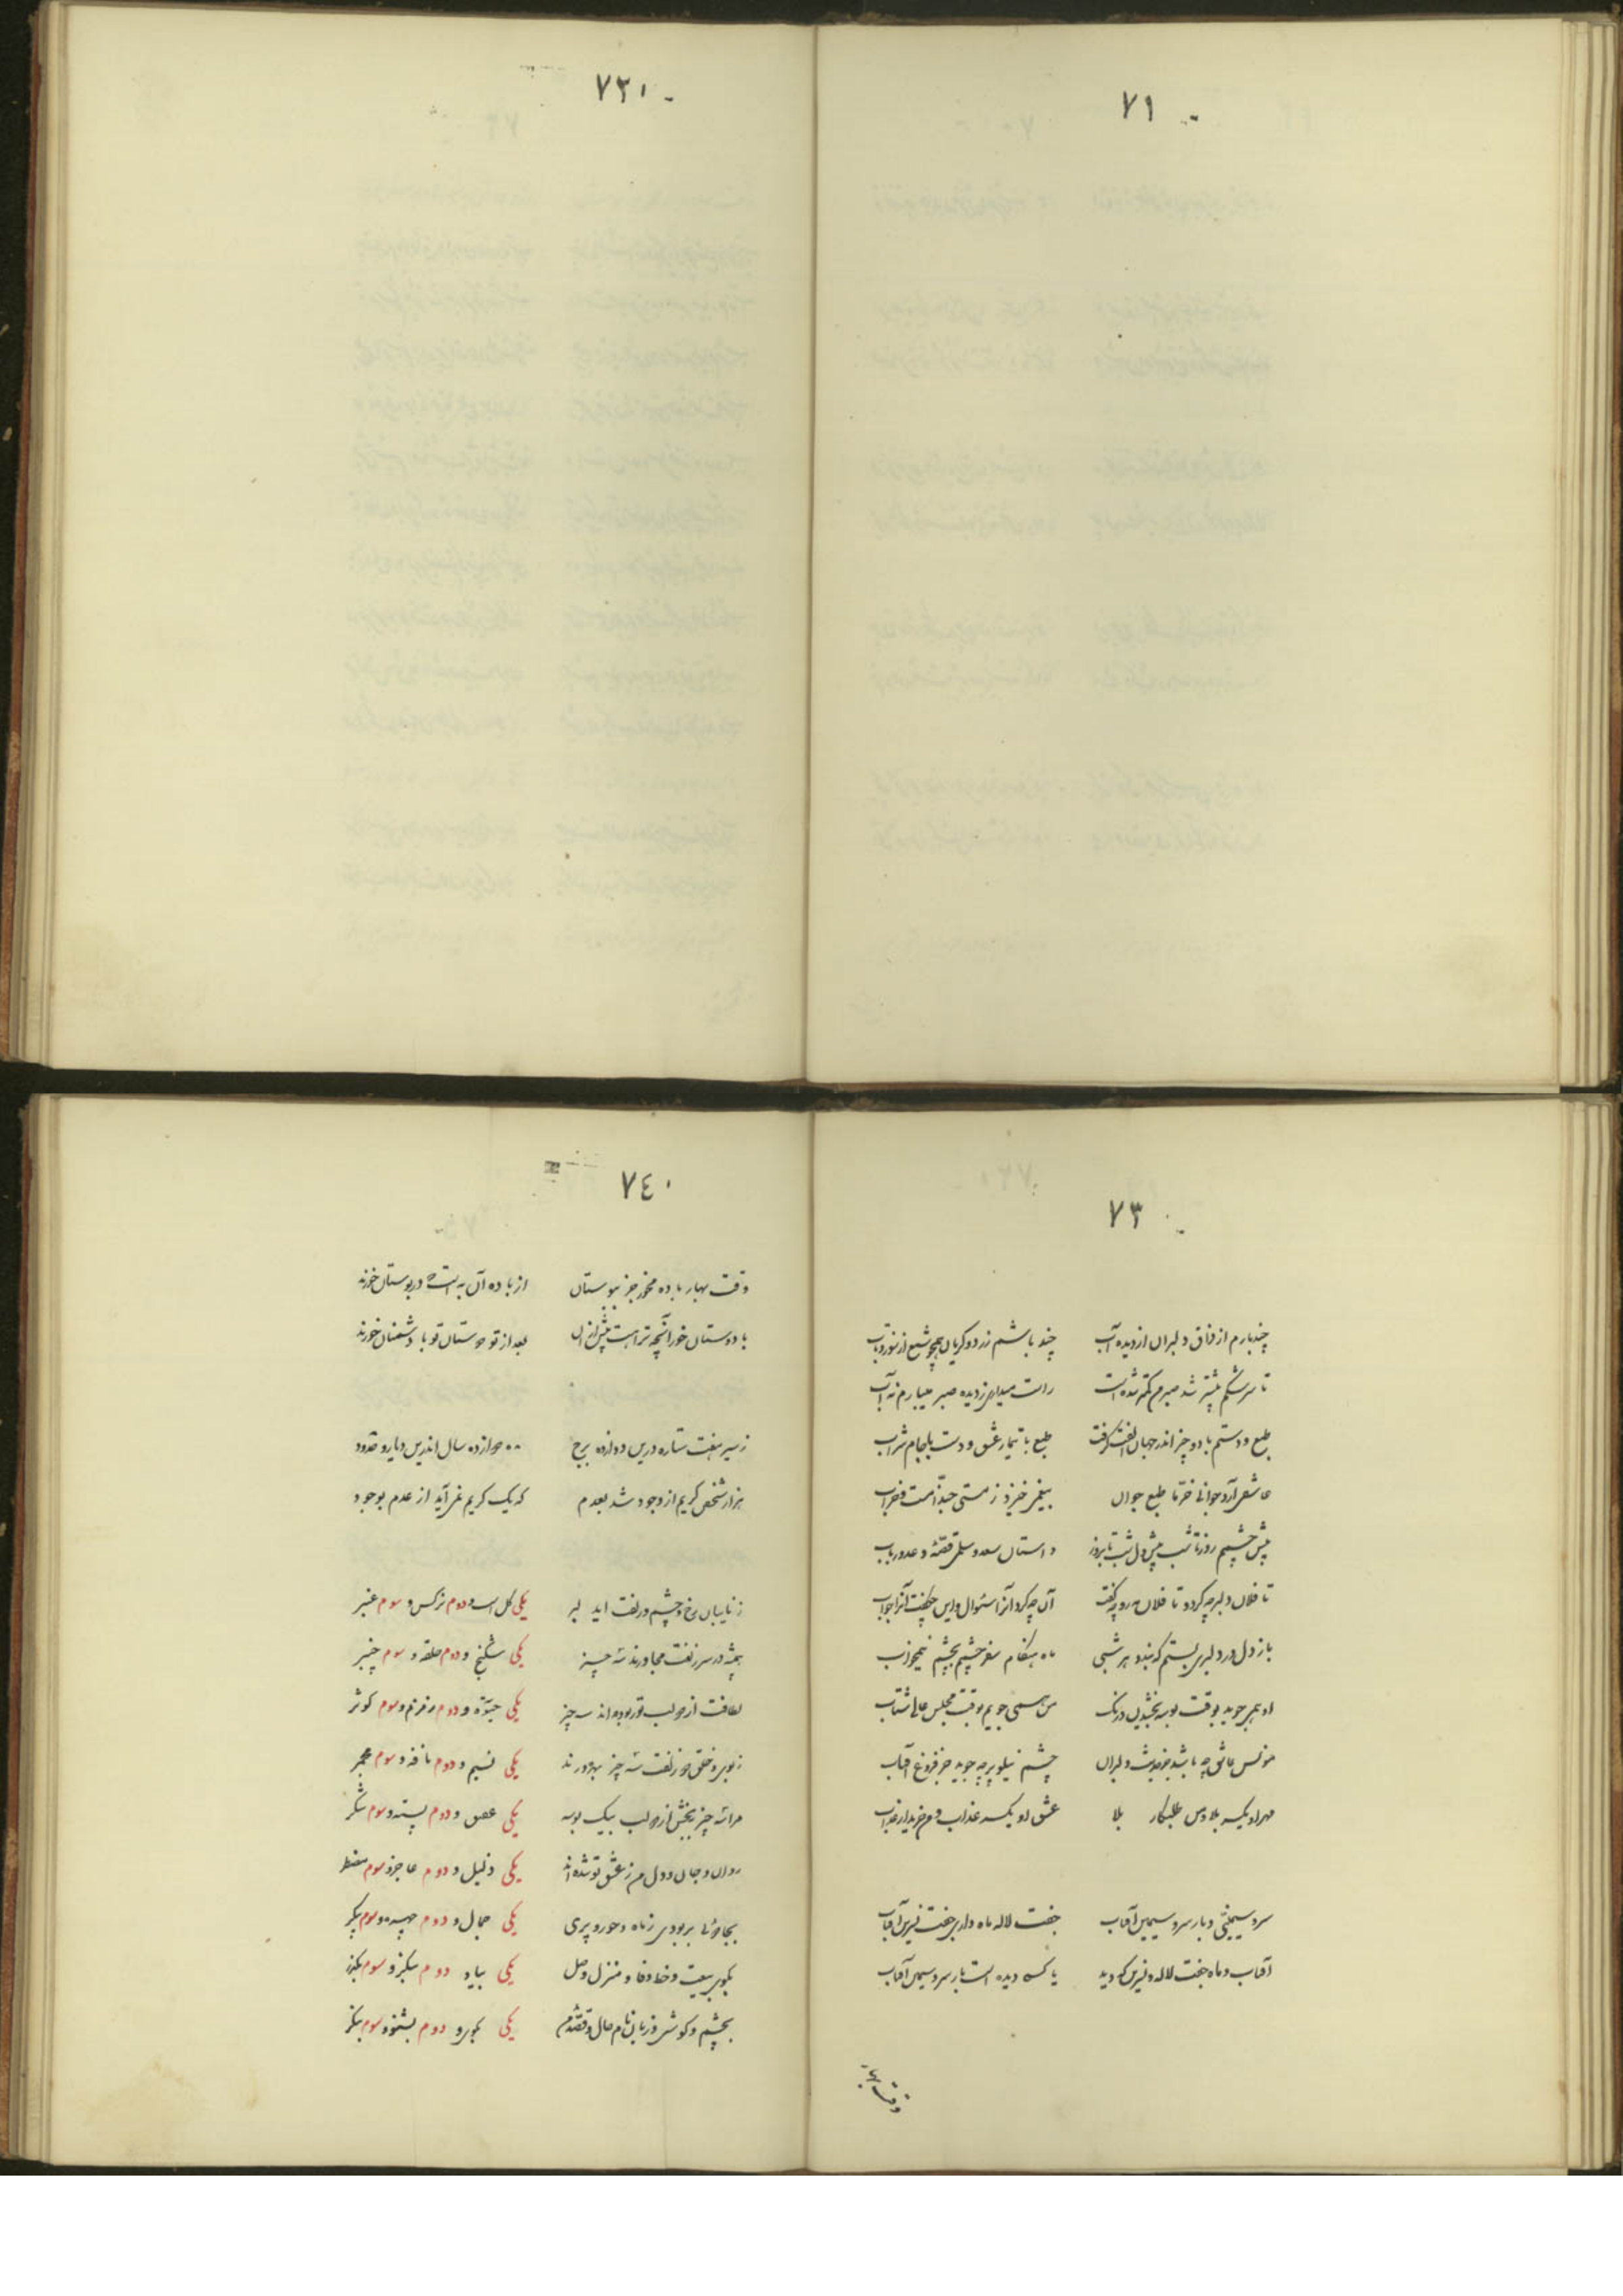 ٧١
٧٢
٧٣
چند بارم از فراق دلبران از دیده آب چند باشم زرد و گریان همچو شمع از نور و تاب
تا سرشکم بیشتر شد صبر من کمتر شده است راست میداری ز دیده صبر میبارم نه آب
طبع و دستم با دو چیز اندر جهان الفت گرفت طبع با تیمار عشق و دست با جام شراب
عاشقی آرد جوانی خرما طبع جوان بیغمی خیزد ز مستی حبذا مست خراب
پیش چشمم روز تا شب پیش دل شب تا بروز داستان سعد و سلمی قصهٔ دعد و رباب
تا فلان دلبر چه کرد و تا فلان مه رو چه گفت آن چه کرد آنرا سئوال و این چه گفت آنرا جواب
باز دل در دلبری بستم که بندد هر شبی ماه هنگام سفر چشمم بچشم نیمخواب
او همی جوید بوقت بوسه بخشیدن درنگ من همی جویم بوقت مجلس عالی شتاب
مونس عاشق چه باشد جز حدیث دلبران چشم نیلوپر چه جوید جز فروغ آفتاب
مهر او یکسر بلا و من طلبکار بلا عشق او یکسر عذاب و من خریدار عذاب
سرو سیمینی و بار سرو سیمین آفتاب جفت لاله ماه داری جفت نسرین آفتاب
آفتاب و ماه جفت لاله و نسرین که دید یا که دیده است بار سرو سیمین آفتاب
وقت بهار
٧٤
وقت بهار باده مخور جز ببوستان از باده آن به است که در بوستان خورند
با دوستان خور آنچه ترا هست پیش از آن بعد از تو دوستان تو با دشمنان خورند
ز سیر هفت ستاره درین دوازده برج دوازده سال اندرین دیار و حدود
هزار شخص کریم از وجود شد بعدم که یک کریم نمی آید از عدم بوجود
رخ و چشم و زلفت ای دلبر یکی گل است و دوم نرگس و سوم عنبر
همیشه در سر زلفت مجاورند سه چیز یکی شکنج و دوم حلقه و سوم چنبر
لطافت از دو لب تو ربوده اند سه چیز یکی و دوم زمزم و سوم کوثر
ز بوی و خلق و زلفت سه چیز بهره ورند یکی نسیم و دوم نافه و سوم مجمر
مرا سه چیز ببخش از دو لب بیک بوسه یکی عقیق و دوم پسته و سوم شکر
روان و جان و دل من ز عشق تو شده اند یکی ذلیل و دوم عاجز و سوم مضطر
بربودی ز ماه و حور و پری یکی جمال و دوم چهره و سوم پیکر
بکوی بیعت و خط وفا و منزل وصل یکی بیا و دوم بگذر و سوم بنگر
بچشم و گوش و زبان حال و قصه من یکی بگوی و دوم بشنو و سوم بنگر